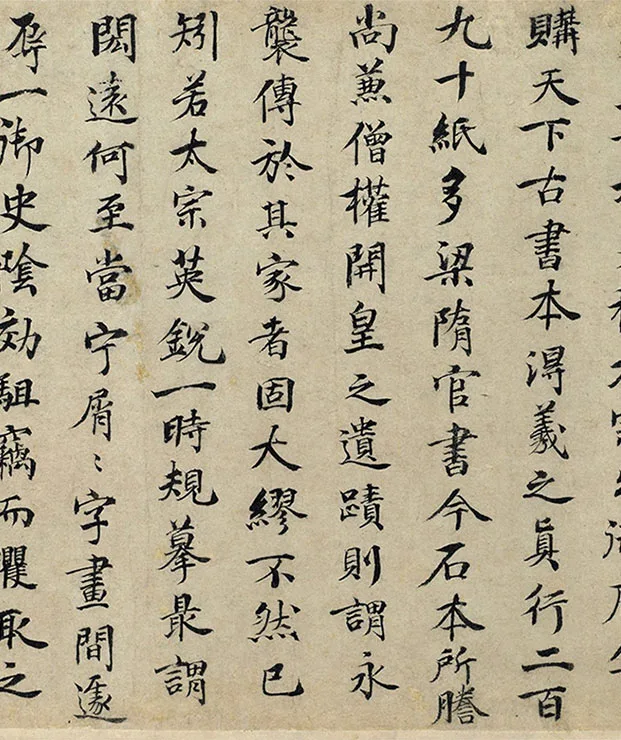 購天下古書本得羲之真行二百
九十紙多梁隋官書今石本所謄
尚蒹僧權開皇之遺蹟則謂永
襲傳於其家者固大繆不然已
矧若太宗英銳一時規摹最謂
閎遠何至當宁屑〻字畫間遂
辱一御史陰効駔竊而攫取之